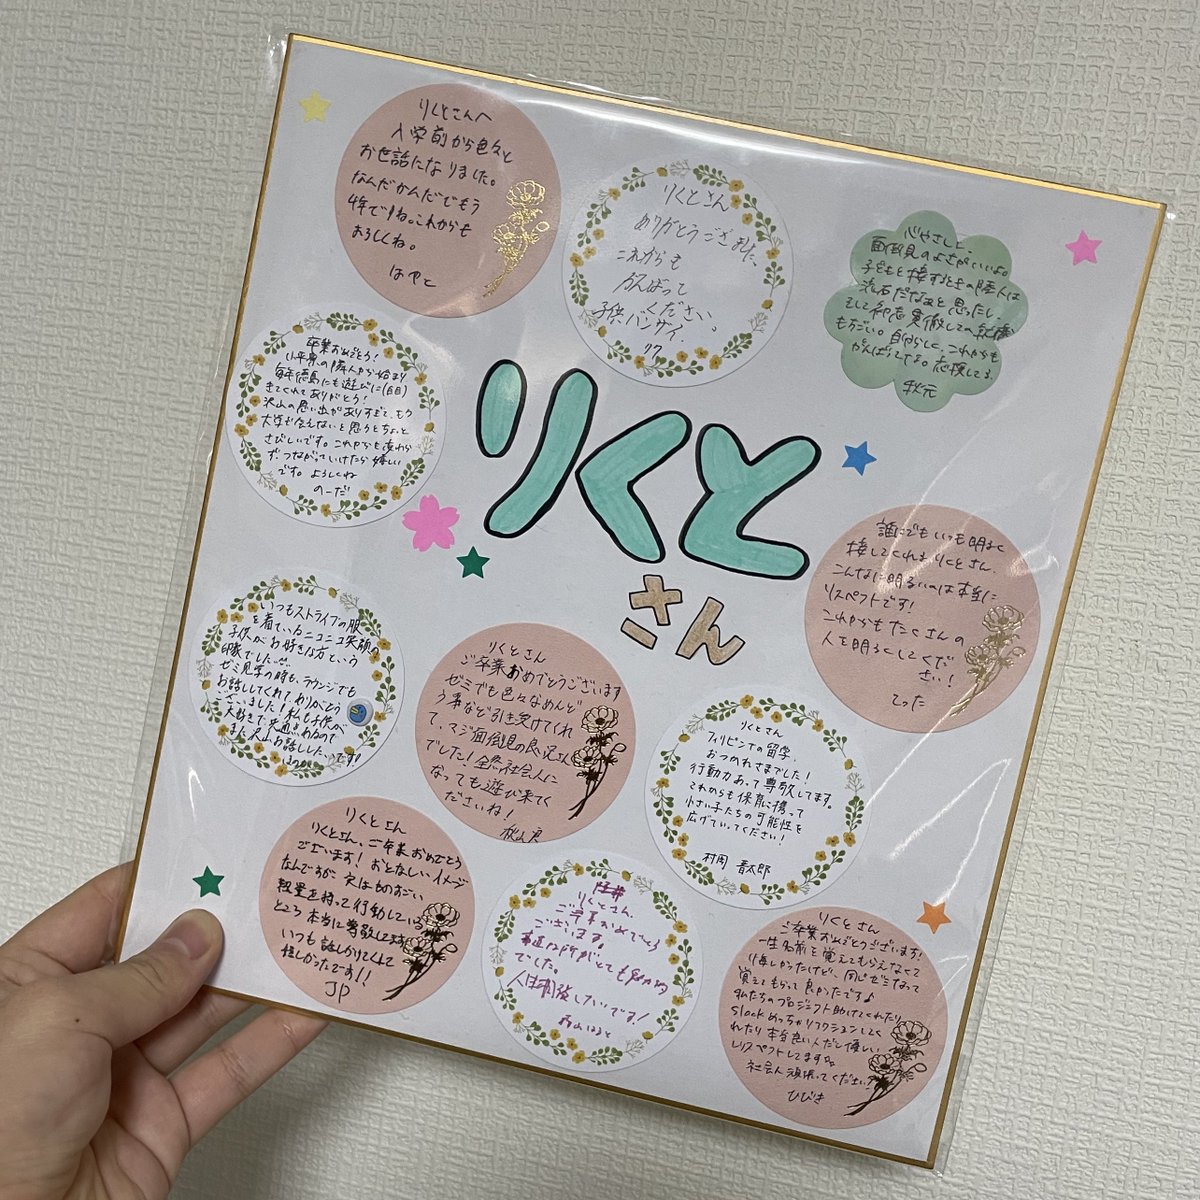 りくとさんへ
入学前から色々と
お世話になりました。
なんだかんだでもう
4年ですね。これからも
よろしくね。
はやと
りくとさん
ありがとうございました、
これからも
がんばって
ください。
子供バンザイ、
心やさしく、
面倒見のよさがいいよ。
子どもと接するときの隣人は
流石だなぁと思ったし、
そして初志貫徹しての就職
もすごい。自分らしく、これからも
がんばってよ。応援してる
秋元
卒業おめでとう!
小平寮の隣人から始まり
毎年徳島にも遊びに
きてくれてありがとう!
沢山の思い出がありすぎて、もう
大学で会えないと思うとちょっと
さびしいです。これからも変わら
ず、つながっていけたら嬉しい
です。よろしくね
のーだ!
りくと
さん
誰にでもいつも明るく
接してくれるりくとさん
こんなに明るいのは本当に
リスペクトです!
これからもたくさんの
人を明るくしてくだ
さい!
てった
いつもストライプの服
を着ているニコニコ笑顔の
子供がお好きな方という
印象でした
ゼミ見学の時も、ラウンジでも
お話ししてくれて、ありがとう
ございました!私も子供が
大好きで共通点あるので
また沢山お話ししたいです!
ほのか
りくとさん
ご卒業おめでとうございます
ゼミでも色々なめんど
う事など引き受けてくれ
て、マジ面倒見の良い兄さん
でした!全然社会人に
なっても遊び来てく
ださいね!
りくとさん
フィリピンの留学、
おつかれさまでした!
行動力あって尊敬してます。
これからも保育に携って
小さい子たちの可能性を
広げていってください!
村岡 晋太郎
りくとさん
りくとさん、ご卒業おめでとう
ございます!おとなしいイメージ
なんですが、実はものすごい
熱量を持って行動している
ところ本当に尊敬してます
いつも話しかけてくれて
嬉しかったです!!
JP
りくとさん
ご卒業おめでとう
ございます。
でした。
人生相談したいです!
西山はると
りくとさん
ご卒業おめでとうございます!
一生名前を覚えてもらえなくて
悔しかったけど、同じゼミなって
覚えてもらって良かったです♪
私たちのプロジェクト助けてくれたり
Slackめっちゃリアクションしてく
れたり本当良い人だし優しい
しリスペクトしてます。
社会人頑張ってください!
ひびき